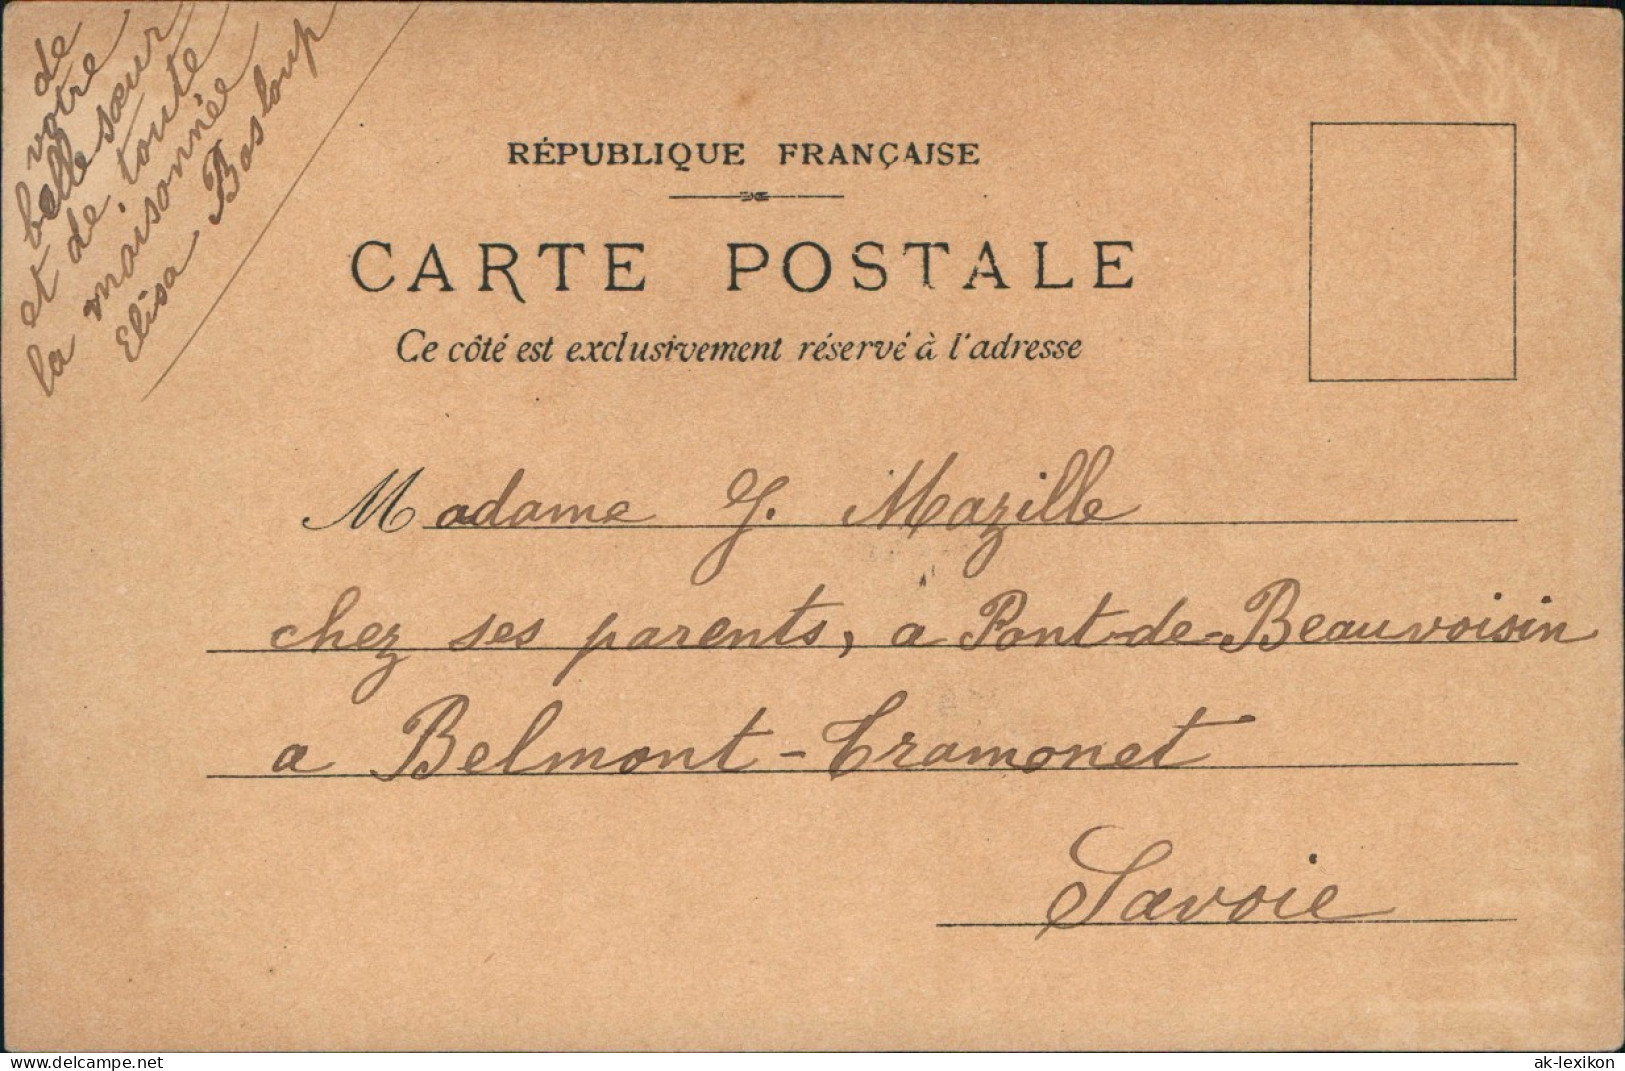 de
votre
belle sœur
et de toute
la maisonnée
Elisa Basloup
RÉPUBLIQUE FRANÇAISE
CARTE POSTALE
Ce côté est exclusivement réservé à l'adresse
Madame J. Mazille
chez ses parents, a Pont-de-Beauvoisin
a Belmont-Tramonet
Savoie
delcampe.net
ak-lexikon